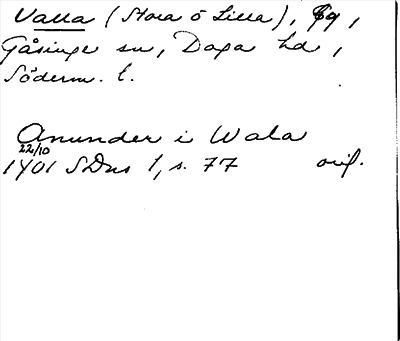 Valla (Stora o Lilla), gg,
Gåsinge sn, Daga hd,
Söderm. l.
Anunder i Wala
22/10
1401 SDns 1, s. 77 orig.